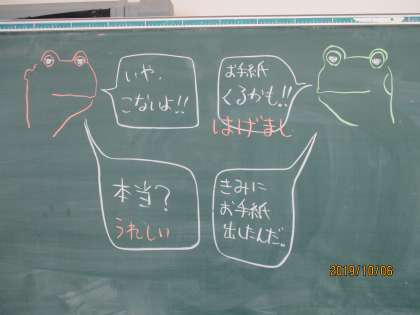 いや、
こないよ!!
お手紙
くるかも!!
はげまし
本当?
うれしい
きみに
お手紙
出したんだ。
2019/10/06